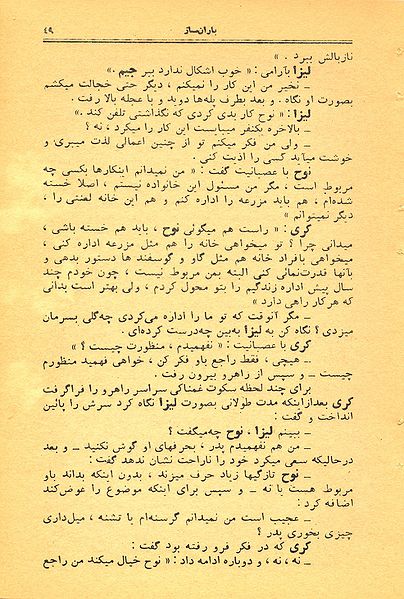 باران‌ساز
۴۹
نازبالش ببرد . »
لیزا بآرامی : « خوب اشکال ندارد ببر جیم .»
ــ نخیر من این کار را نمیکنم ، دیگر حتی خجالت میکشم
بصورت او نگاه . و بعد بطرف پله‌ها دوید و با عجله بالا رفت .
لیزا : « نوح کار بدی کردی که نگذاشتی تلفن کند .»
ــ بالاخره یکنفر میبایست این کار را میکرد ، نه ؟
ــ ولی من فکر میکنم تو از چنین اعمالی لذت میبری و
خوشت میآید کسی را اذیت کنی .
نوح با عصبانیت گفت : « من نمیدانم اینکارها بکسی چه
مربوط است ، مگر من مسئول این خانواده نیستم ، اصلا خسته
شده‌ام ، هم باید مزرعه را اداره کنم و هم این خانه لعنتی را ،
دیگر نمیتوانم »
کری : « راست هم میگوئی نوح ، باید هم خسته باشی ،
میدانی چرا ؟ تو میخواهی خانه را هم مثل مزرعه اداره کنی ،
میخواهی بافراد خانه هم مثل گاو و گوسفند ها دستور بدهی و
بآنها قدرت‌نمائی کنی البته بمن مربوط نیست ، چون خودم چند
سال پیش اداره زندگیم را بتو محول کردم ، ولی بهتر است بدانی
که هر کار راهی دارد »
ــ مگر آنوقت که تو ما را اداره می‌کردی چه‌گلی بسرمان
میزدی ؟ نگاه کن به لیزا به‌بین چه‌درست کرده‌ای .
کری با عصبانیت : « نفهمیدم ، منظورت چیست ؟ »
ــ هیچی ، فقط راجع باو فکر کن ، خواهی فهمید منظورم
چیست ــ و سپس از راهرو بیرون رفت .
برای چند لحظه سکوت غمناکی سراسر راهرو را فراگرفت
کری بعدازاینکه مدت طولانی بصورت لیزا نگاه کرد سرش را پائین
انداخت و گفت :
ــ ببینم لیزا ، نوح چه‌میگفت ؟
ــ من هم نفهمیدم پدر ، بحرفهای او گوش نکنید ــ و بعد
درحالیکه سعی میکرد خود را ناراحت نشان ندهد گفت :
ــ نوح تازگیها زیاد حرف میزند ، بدون اینکه بداند باو
مربوط هست یا نه ــ و سپس برای اینکه موضوع را عوض‌کند
اضافه کرد :
ــ عجیب است من نمیدانم گرسنه‌ام یا تشنه ، میل‌داری
چیزی بخوری پدر ؟
کری که در فکر فرو رفته بود گفت :
ــ نه ، نه ، و دوباره ادامه داد : « نوح خیال میکند من راجع